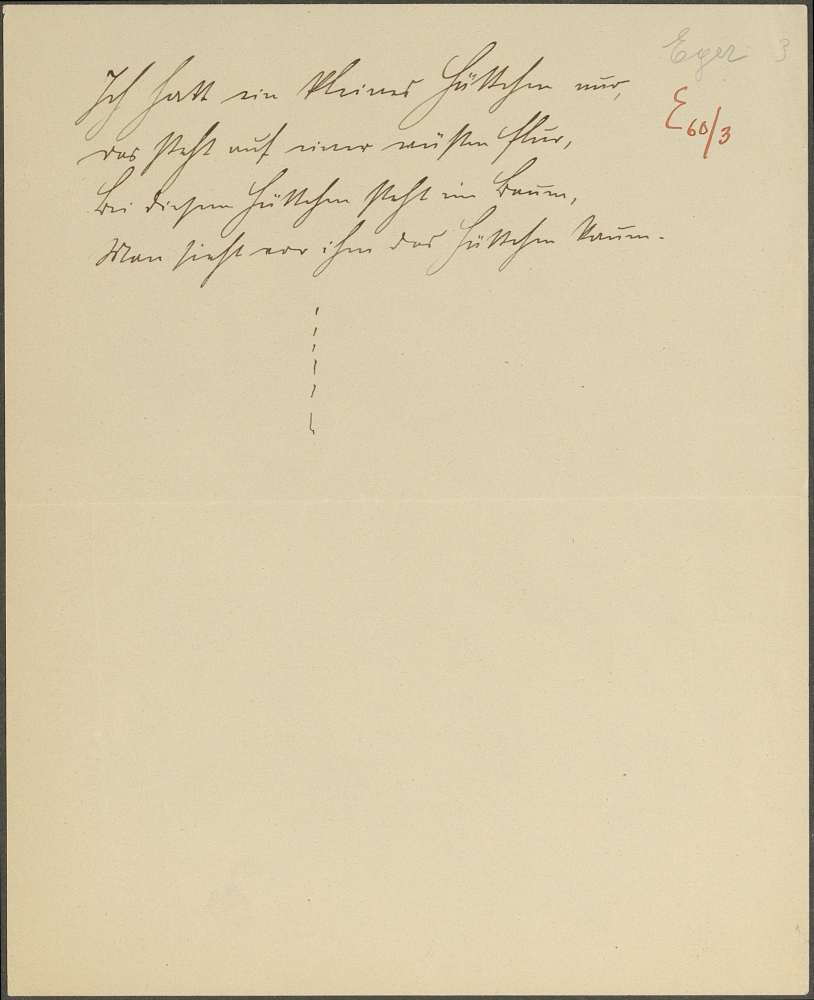 Eger 3
E 60/3
Ich hatt ein kleines Hüttchen nur,
das steht auf einer wüsten Flur,
Bei diesem Hüttchen steht ein Baum,
Man sieht vor ihm das Hüttchen kaum.